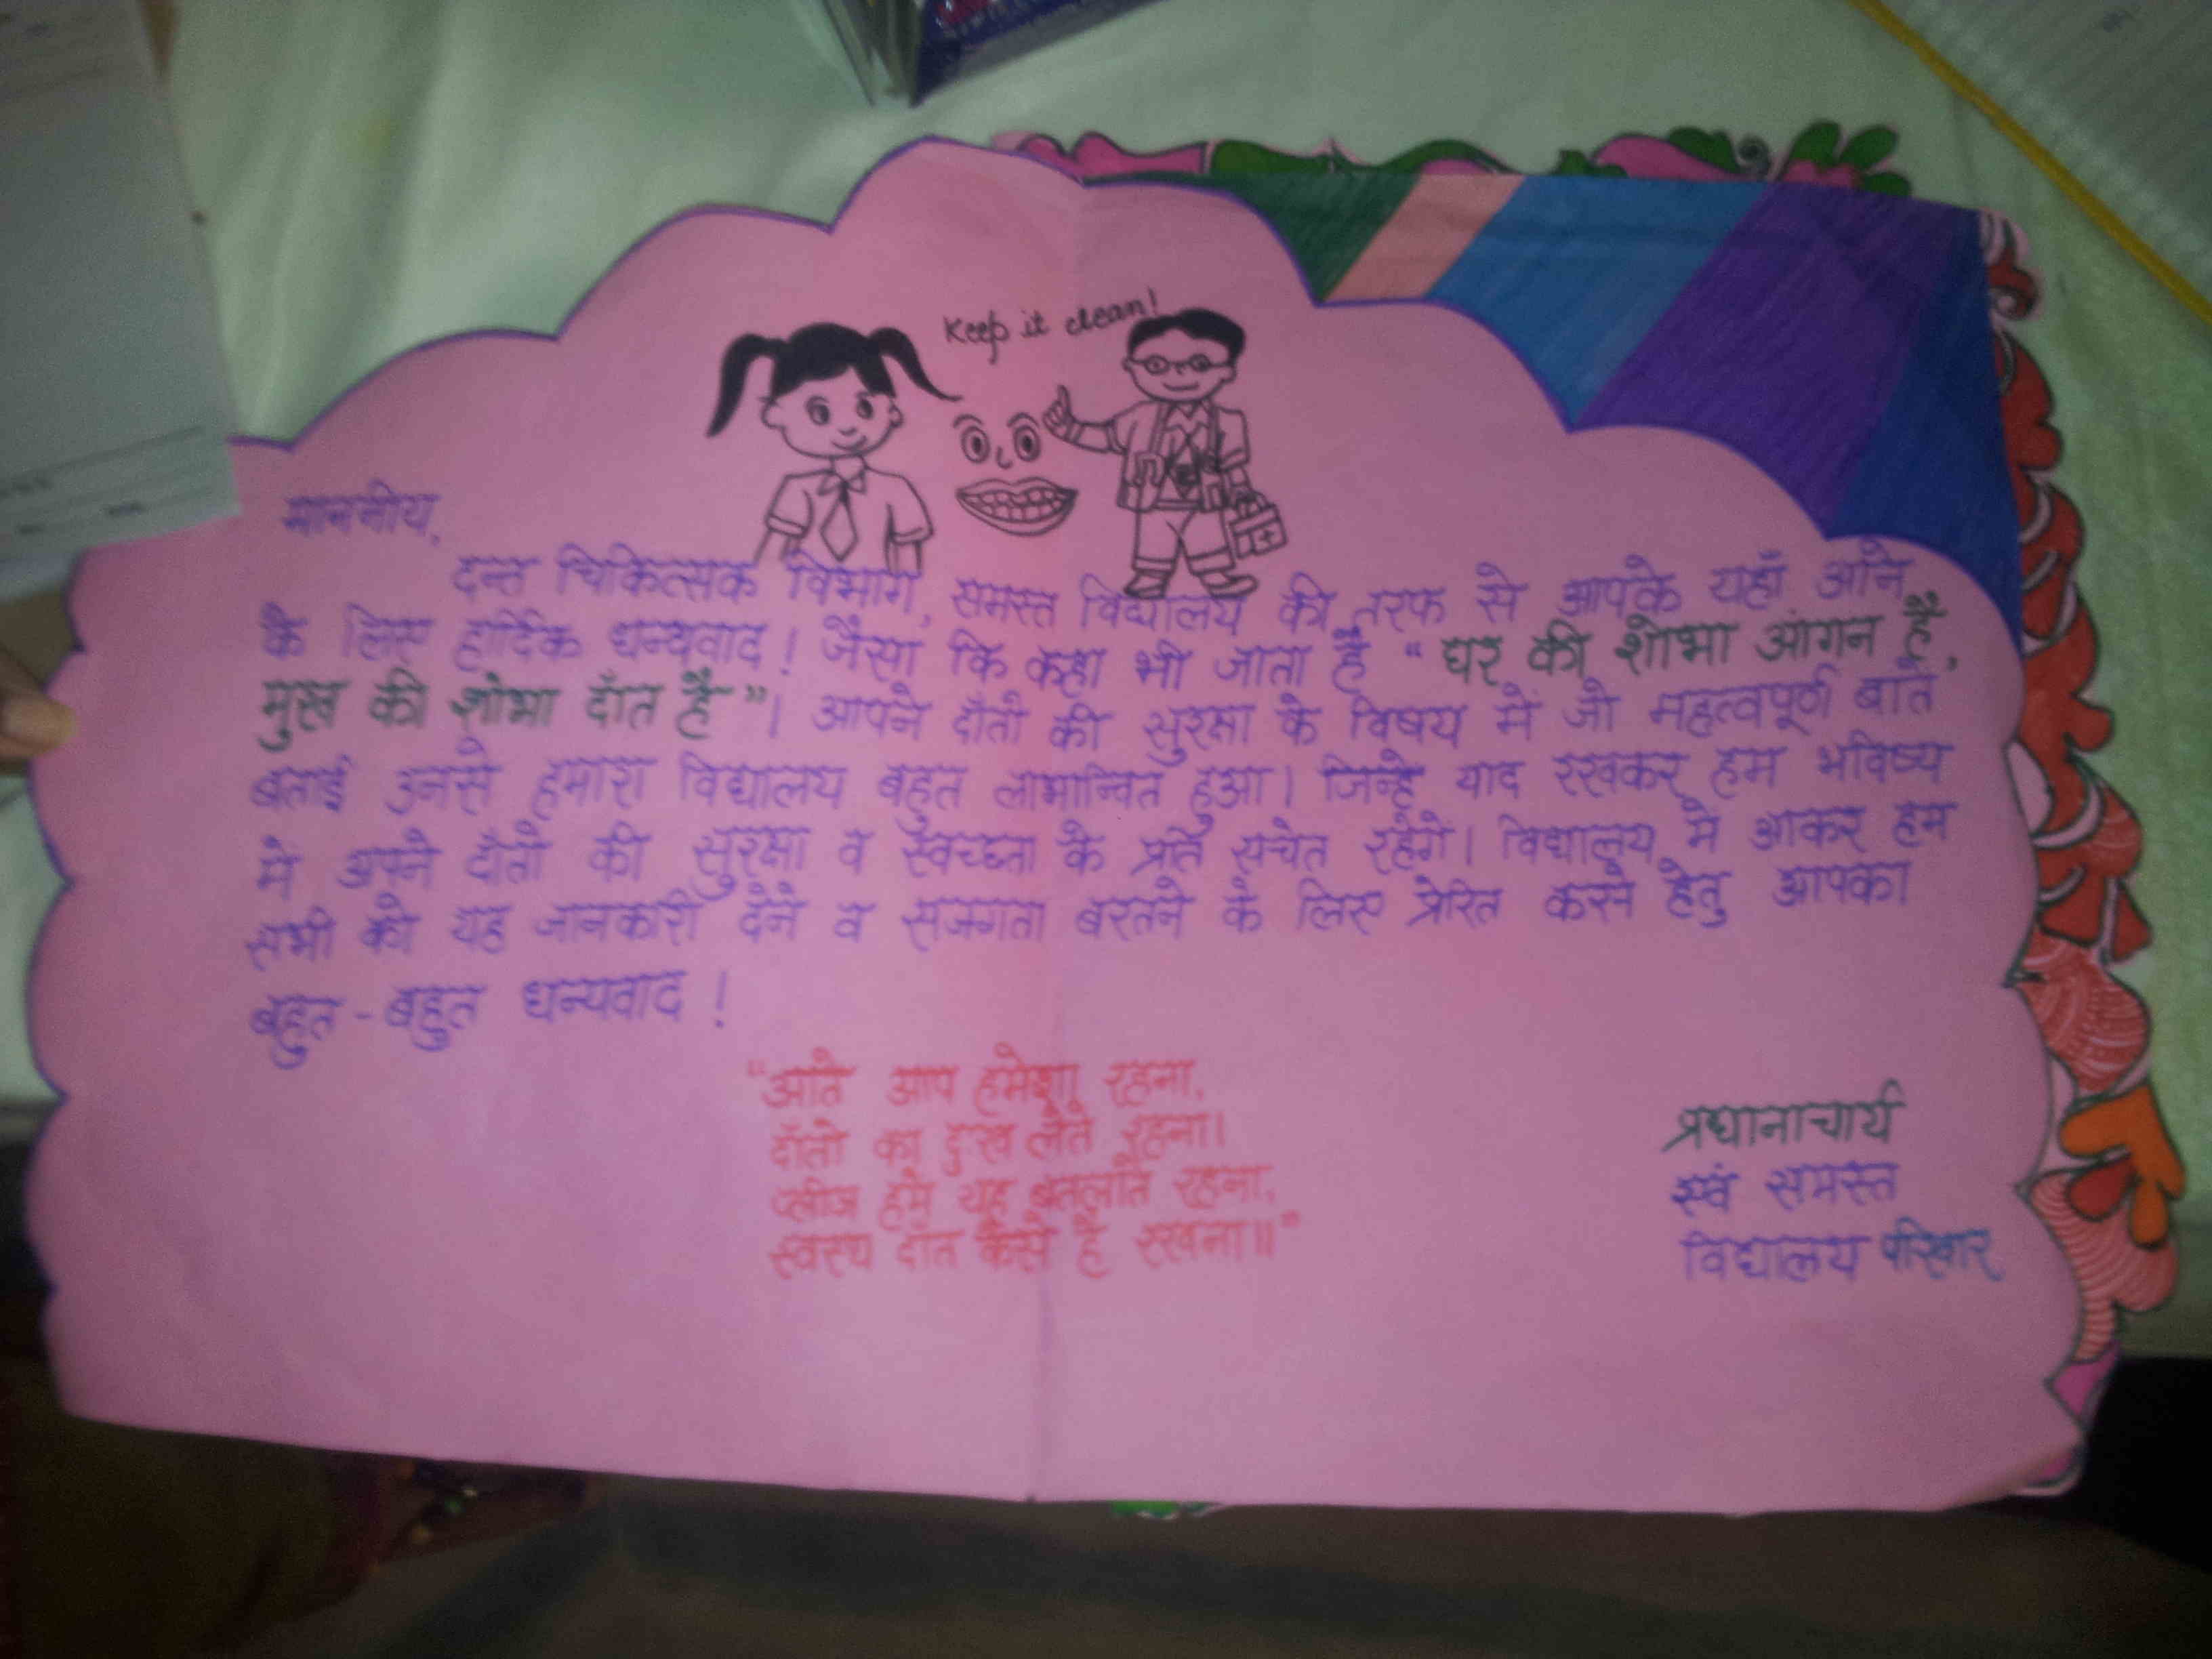 Keep it clean!
माननीय,
दन्त चिकित्सक विभाग, समस्त विद्यालय की तरफ से आपके यहाँ आने
के लिए हार्दिक धन्यवाद! जैसा कि कहा भी जाता है "घर की शोभा आंगन है,
मुख की शोभा दाँत है"। आपने दाँतो की सुरक्षा के विषय में जो महत्वपूर्ण बाते
बताई उनसे हमारा विद्यालय बहुत लाभान्वित हुआ। जिन्हे याद रखकर हम भविष्य
मे अपने दाँतो की सुरक्षा व स्वच्छता के प्रति सचेत रहेंगे। विद्यालय मे आकर हम
सभी को यह जानकारी देने व सजगता बरतने के लिए प्रेरित करने हेतु आपका
बहुत - बहुत धन्यवाद !
"आते आप हमेशा रहना,
दाँतो का दुख लेते रहना।
प्लीज हमे यह बतलाते रहना,
स्वस्थ दाँत कैसे है रखना॥"
प्रधानाचार्य
एवं समस्त
विद्यालय परिवार